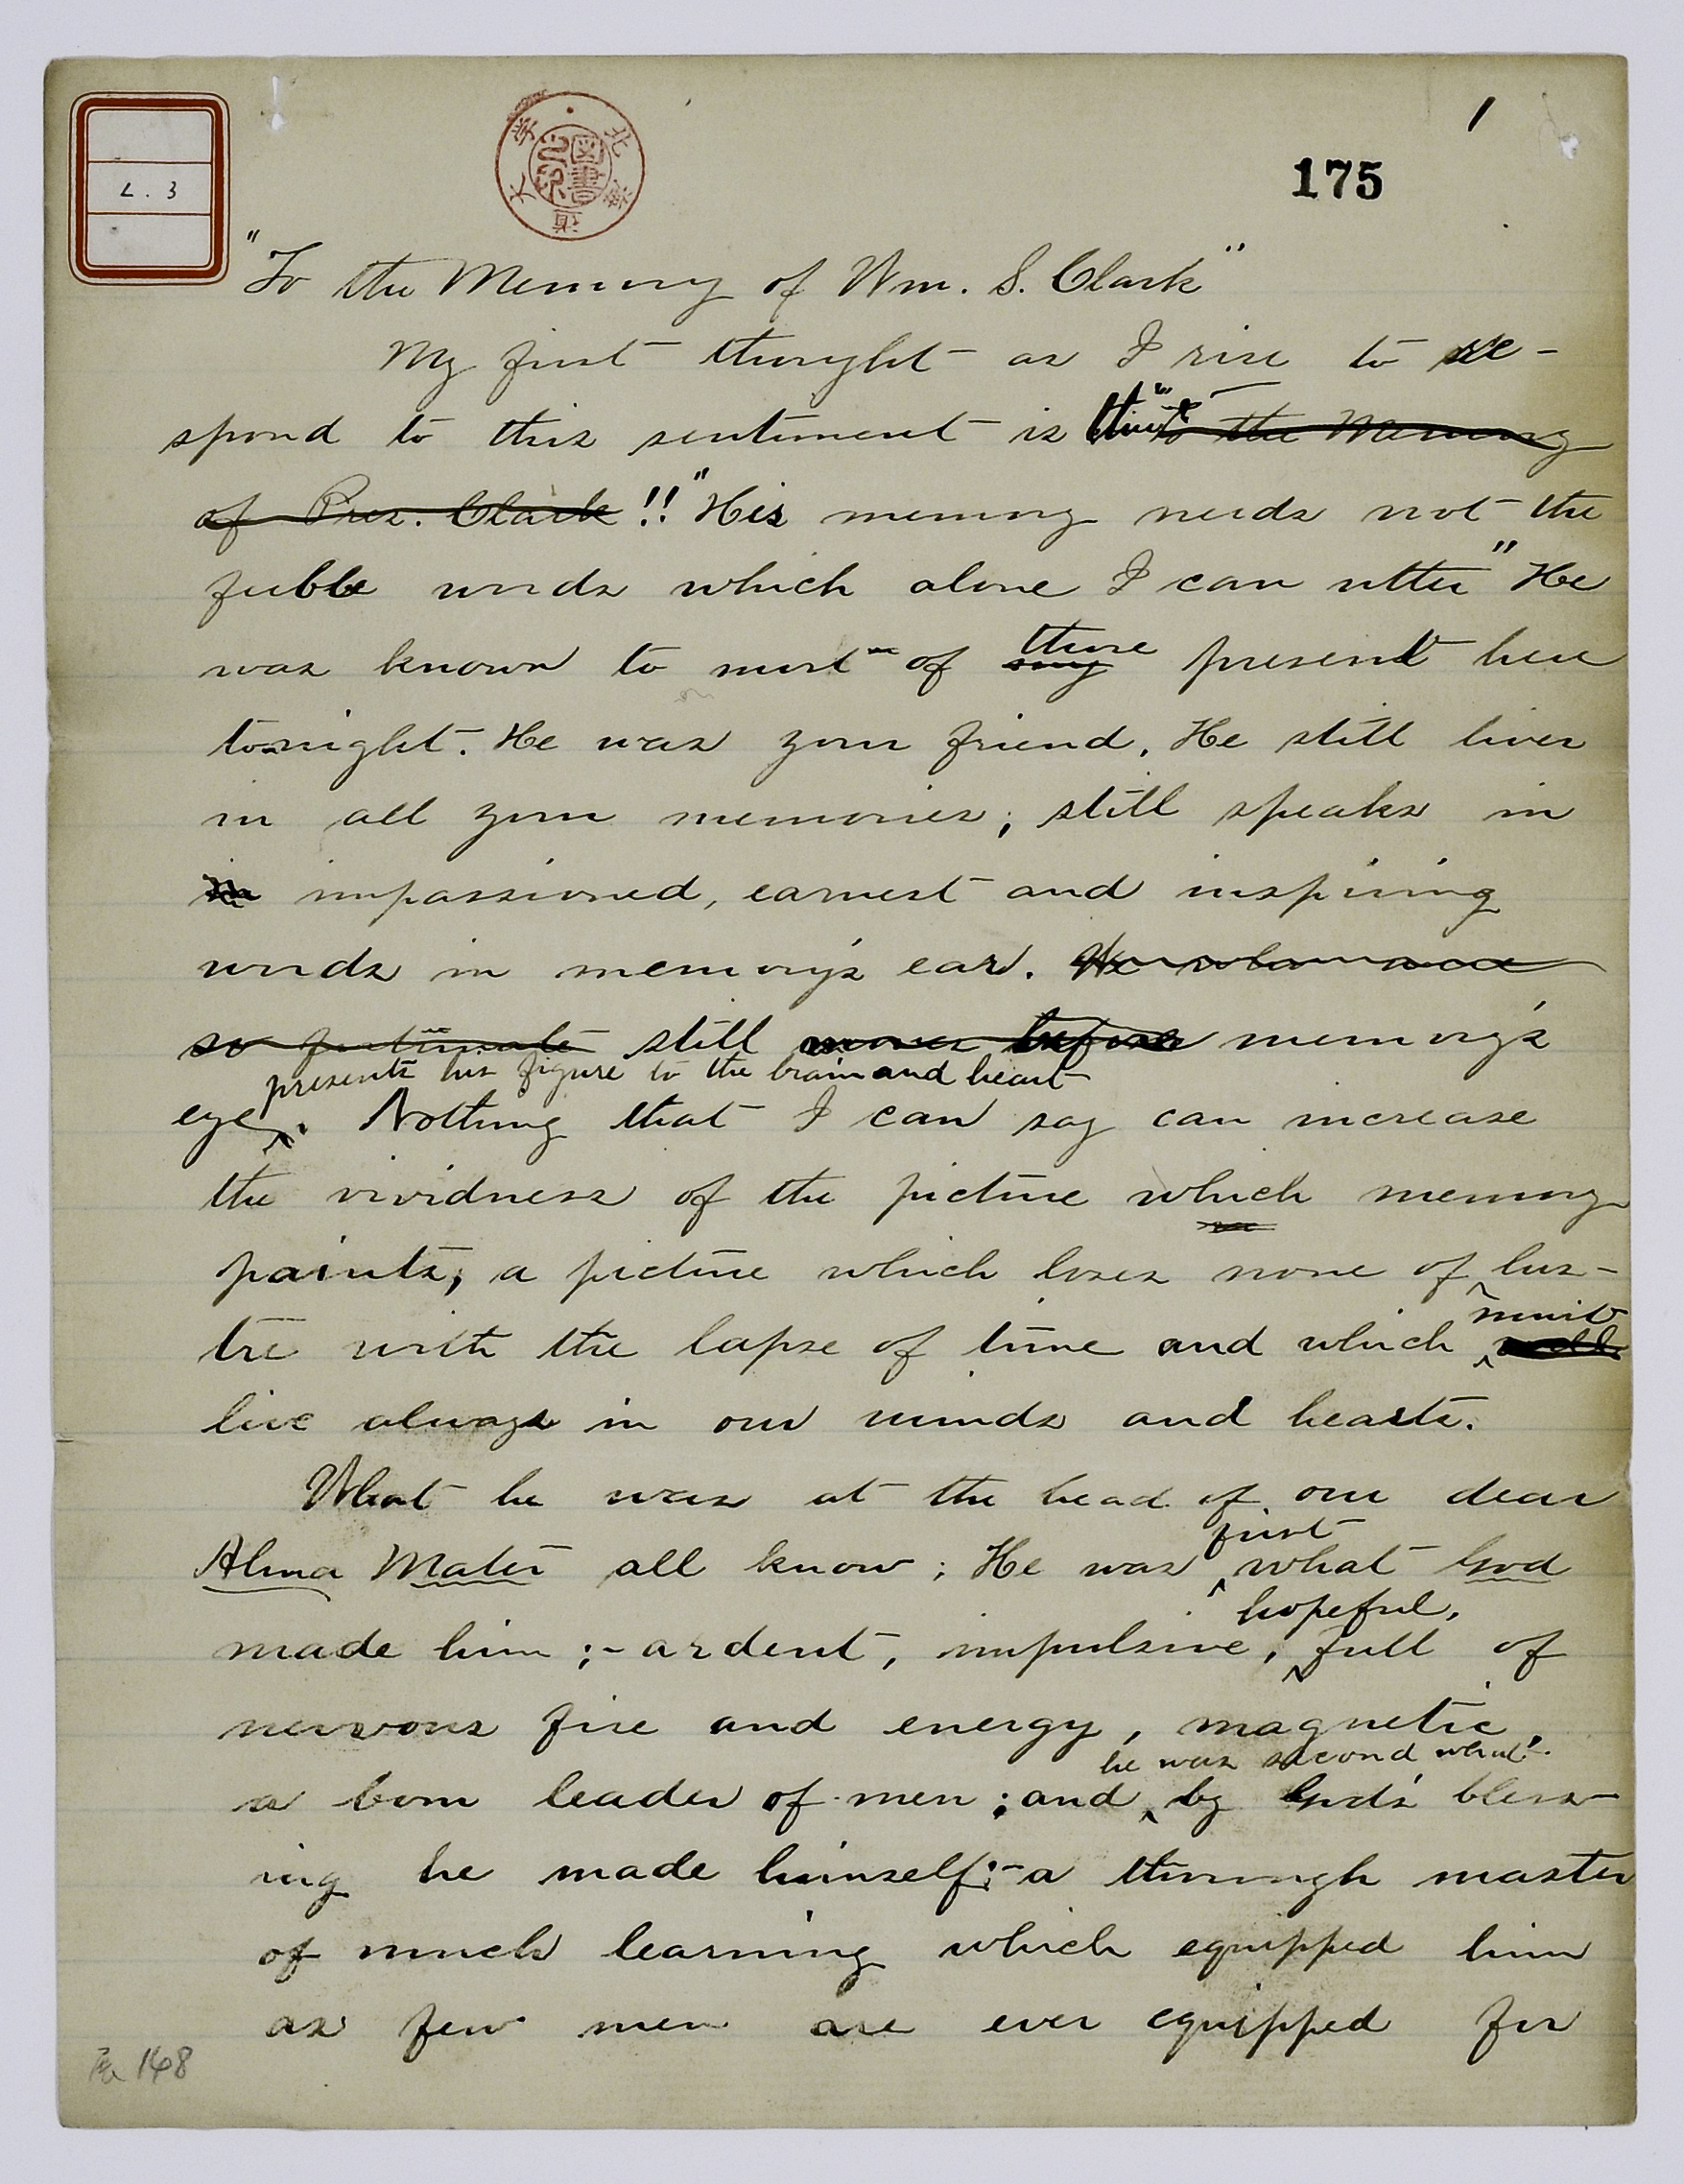 1
175
L. 3
北海道帝国大学
図書
"To the Memory of Wm. S. Clark"
My first thought as I rise to re-
spond to this sentiment is this to the Memory
of Pres. Clark!! "His memory needs not the
feeble words which alone I can utter" He
was known to most of those present here
to-night. He was your friend. He still lives
in all your memories; still speaks in
in impassioned, earnest and inspiring
words in memory's ear. We who were
so fortunate still moves before memory's
presents his figure to the brain and heart
eye. Nothing that I can say can increase
the vividness of the picture which memory
paints; a picture which loses none of lus-
tre with the lapse of time and which must
live always in our minds and hearts.
What he was at the head of our dear
Alma Mater all know; He was first what God
made him;- ardent, impulsive, hopeful, full of
nervous fire and energy, magnetic,
he was second what
a born leader of men; and by God's bless-
ing he made himself;- a thorough master
of much learning which equipped him
as few men are ever equipped for
148